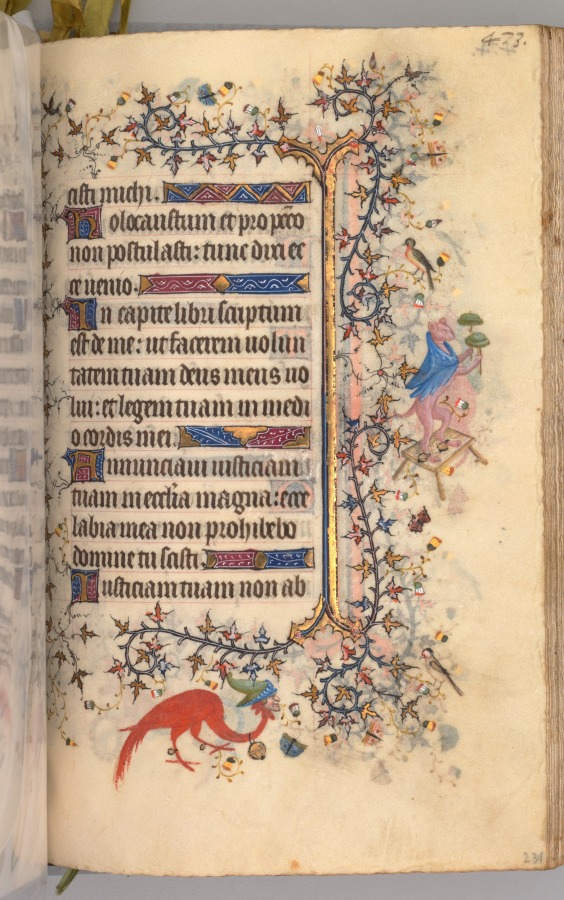 473.
cisti michi.
Holocaustum et pro peccō
non postulasti: tunc dixi ec
ce uenio.
In capite libri scriptum
est de me: ut facerem uolun
tatem tuam deus meus uo
lui: et legem tuam in medi
o cordis mei.
Annunciaui iusticiam
tuam in ecclīa magna: ecce
labia mea non prohibebo
domine tu scisti.
Iusticiam tuam non ab